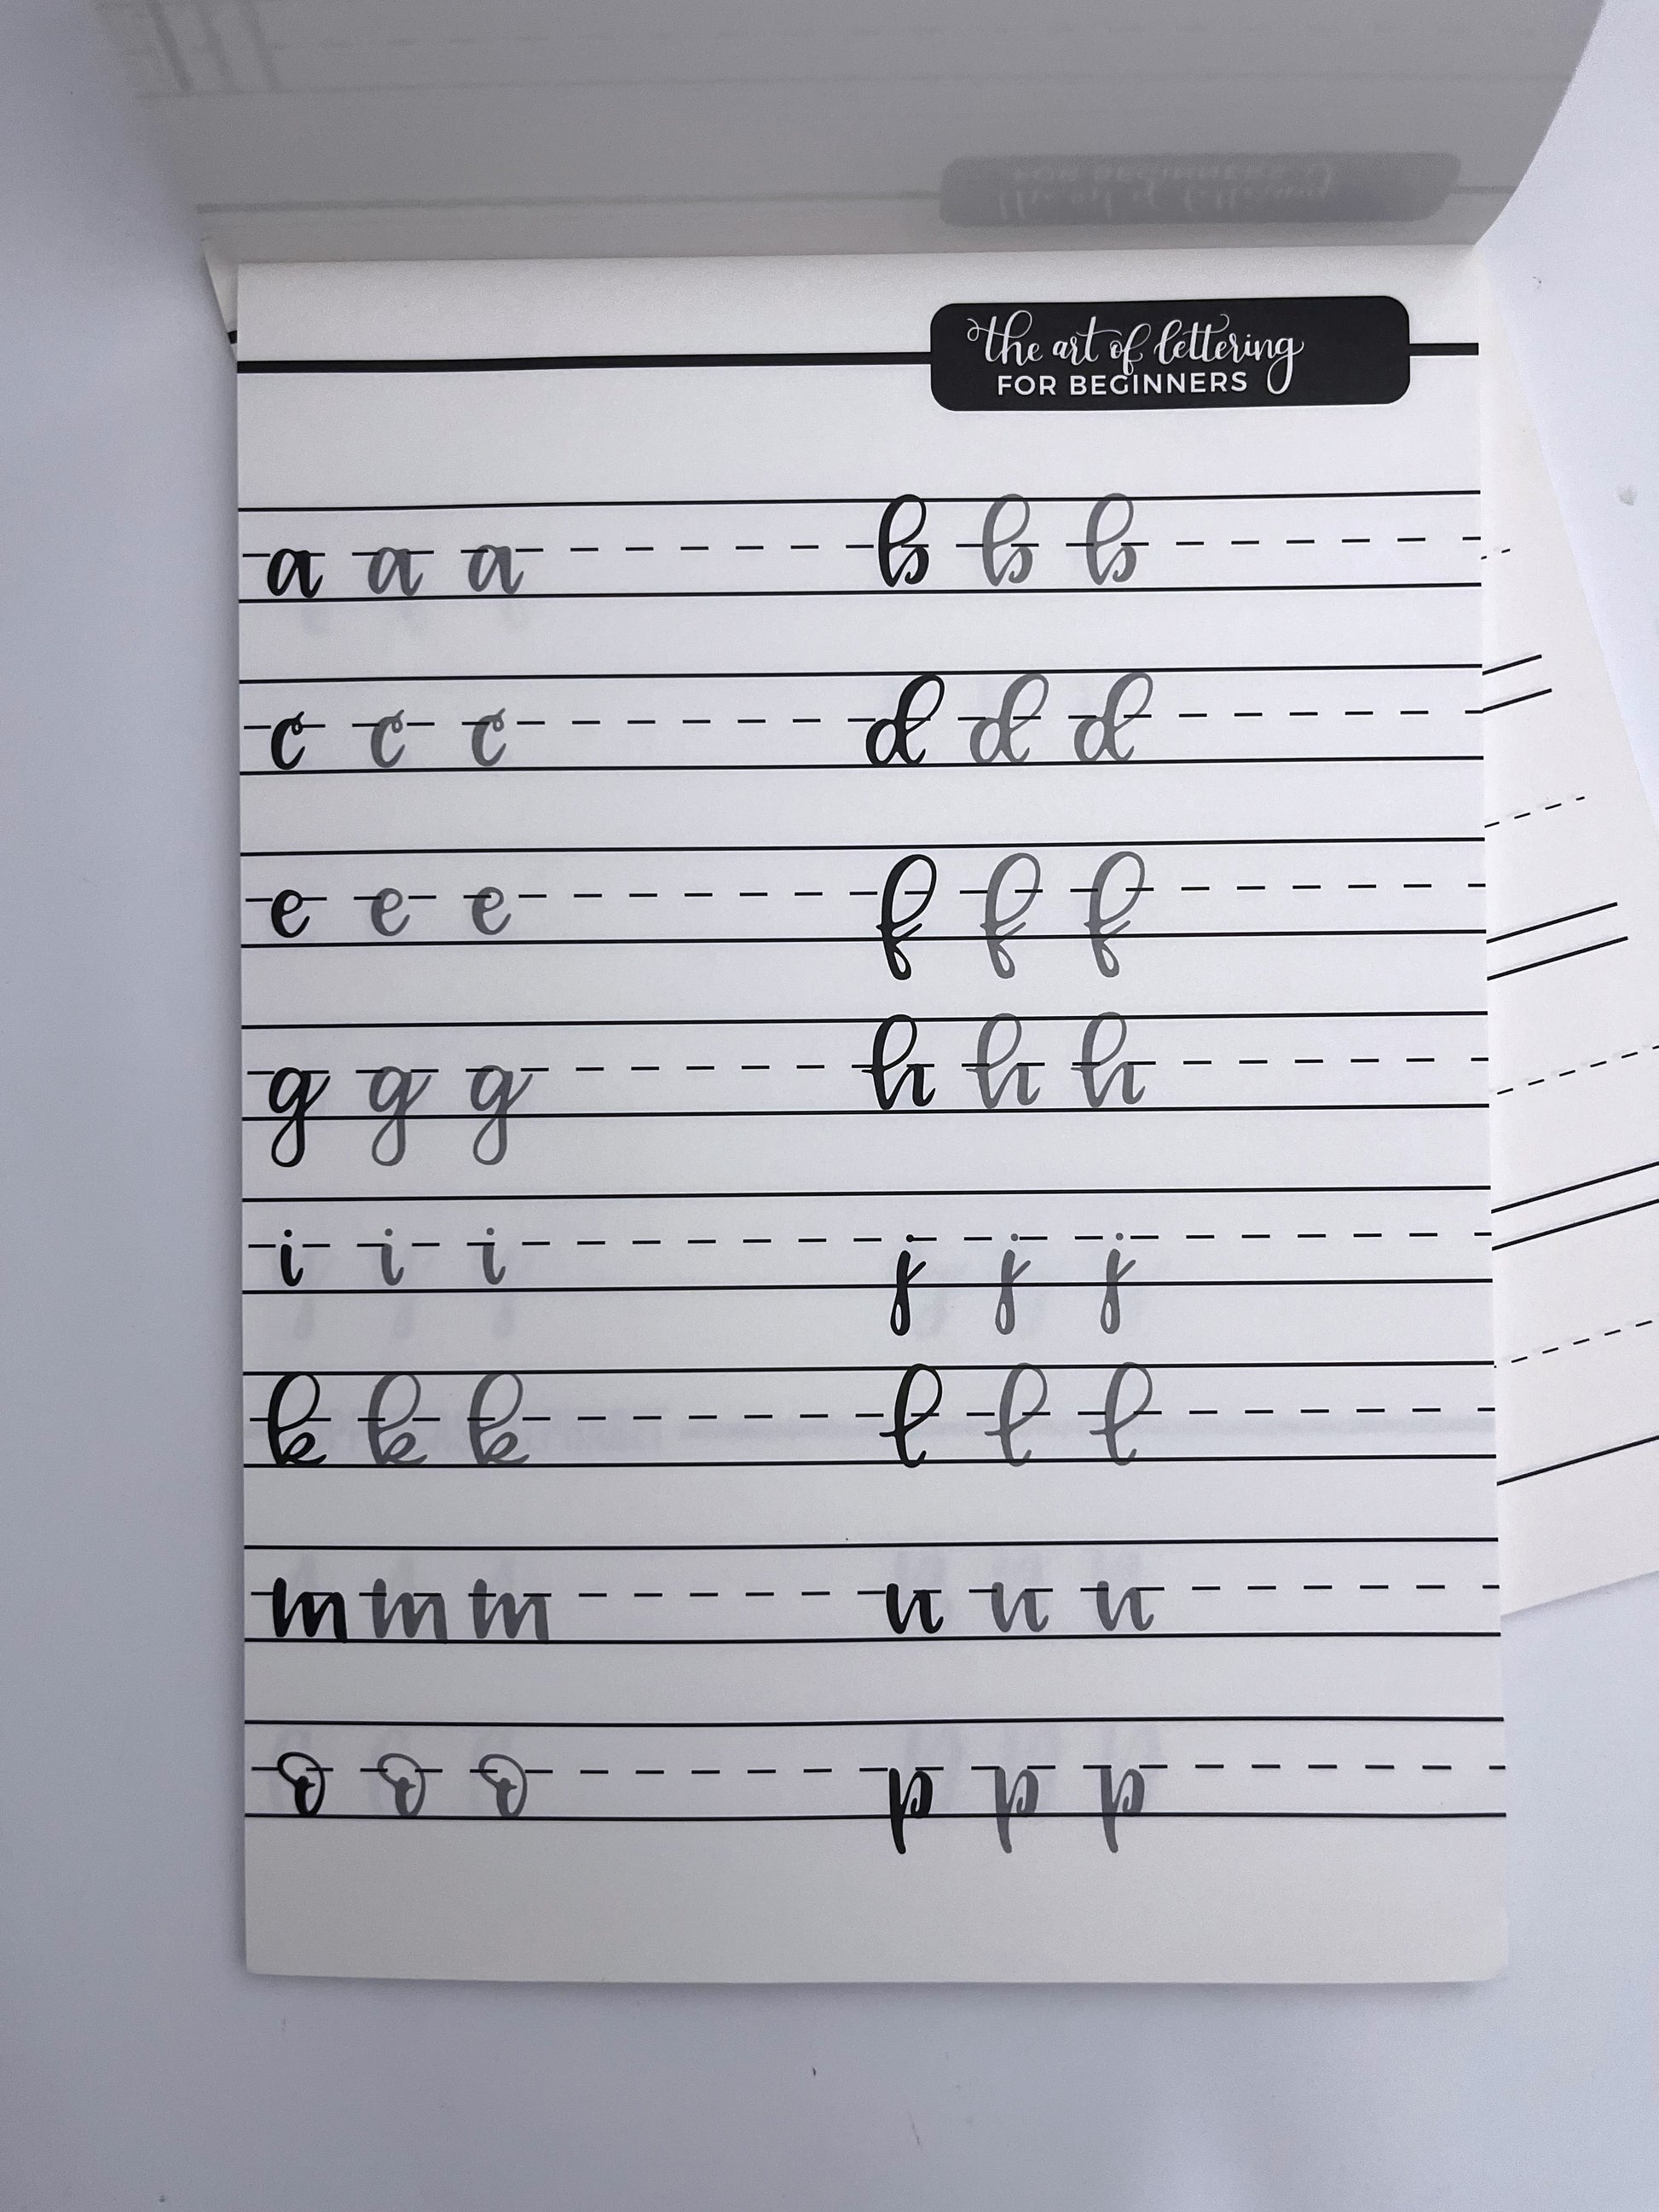 the art of lettering
FOR BEGINNERS
a a a b b b
c c c d d d
e e e f f f
g g g h h h
i i i j j j
k k k l l l
m m m n n n
o o o p p p